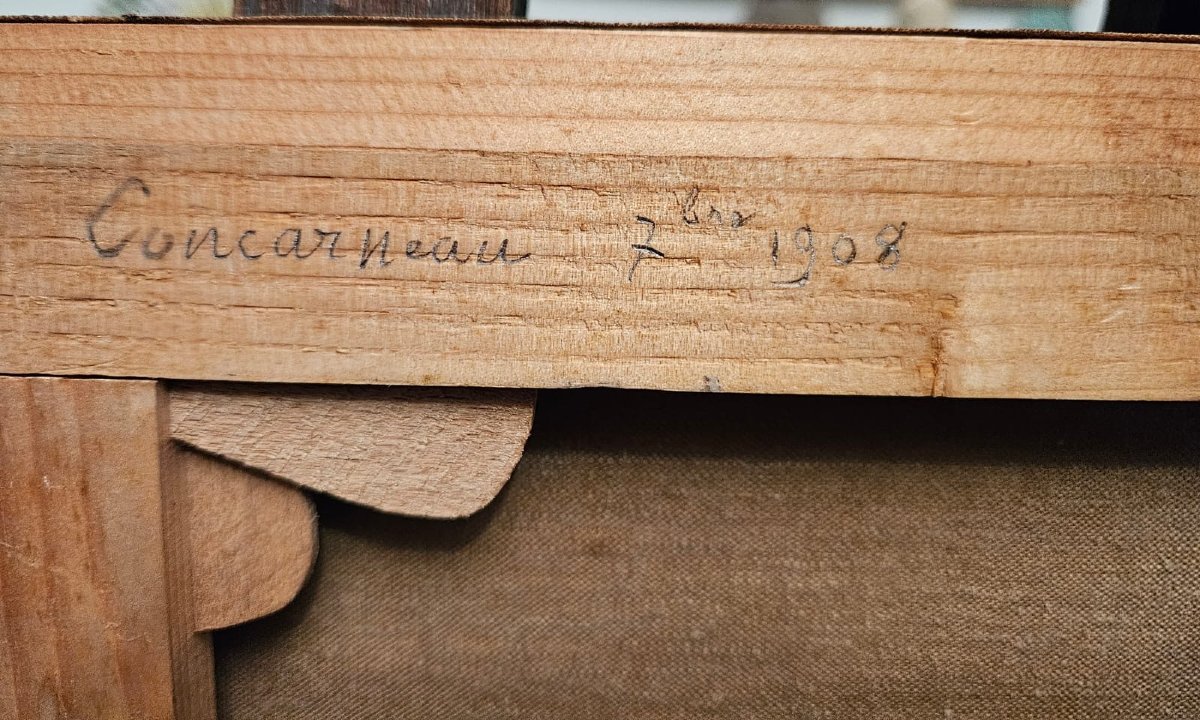 Concarneau 7bre 1908